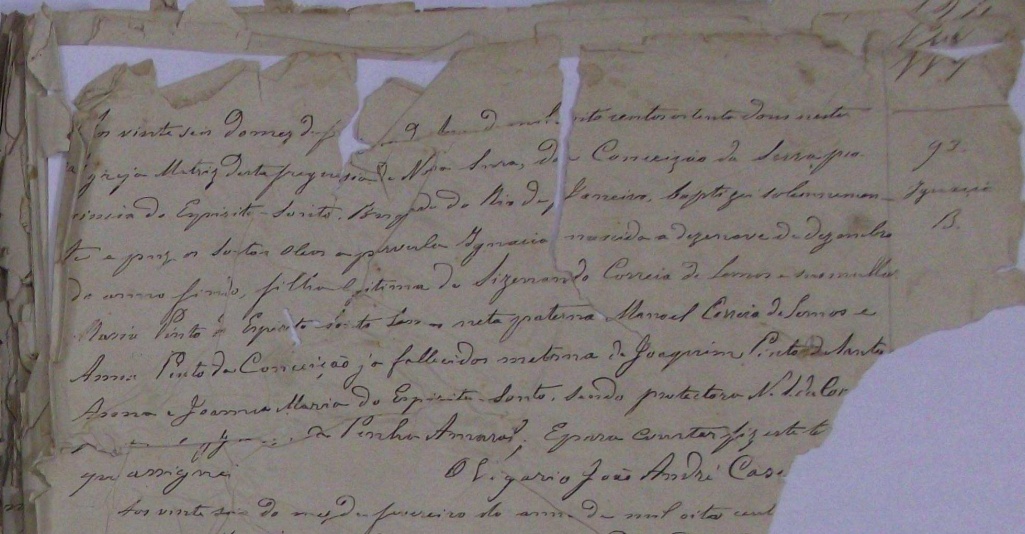 Aos vinte seis do mez de centos oitenta dous nesta
Igreja Matriz desta freguesia de Nossa Senra da Conceição da Serra, pro
vincia do Espirito-Santo, Bispado do Rio de Janeiro, baptizei solennemen-
te e puz os Santos Oleos a parvula Ignacia nascida a dezenove de dezembro
do anno findo, filha legitima de Sizenando Correia de Lemos e sua mulher
Maria Pinto do Espirito Santo Lemos neta paterna Manoel Correia de Lemos e
Anna Pinto da Conceição já fallecidos materna de Joaquim Pinto de Santa
Anna e Joanna Maria do Espirito-Santo, sendo protectora N. S. da Con
da Penha Amaral. E para constar fiz este
que assignei
O Vigario João André Casa
Aos vinte seis do mez de fevereiro do anno de mil oito cent
93.
Ignacia
B.